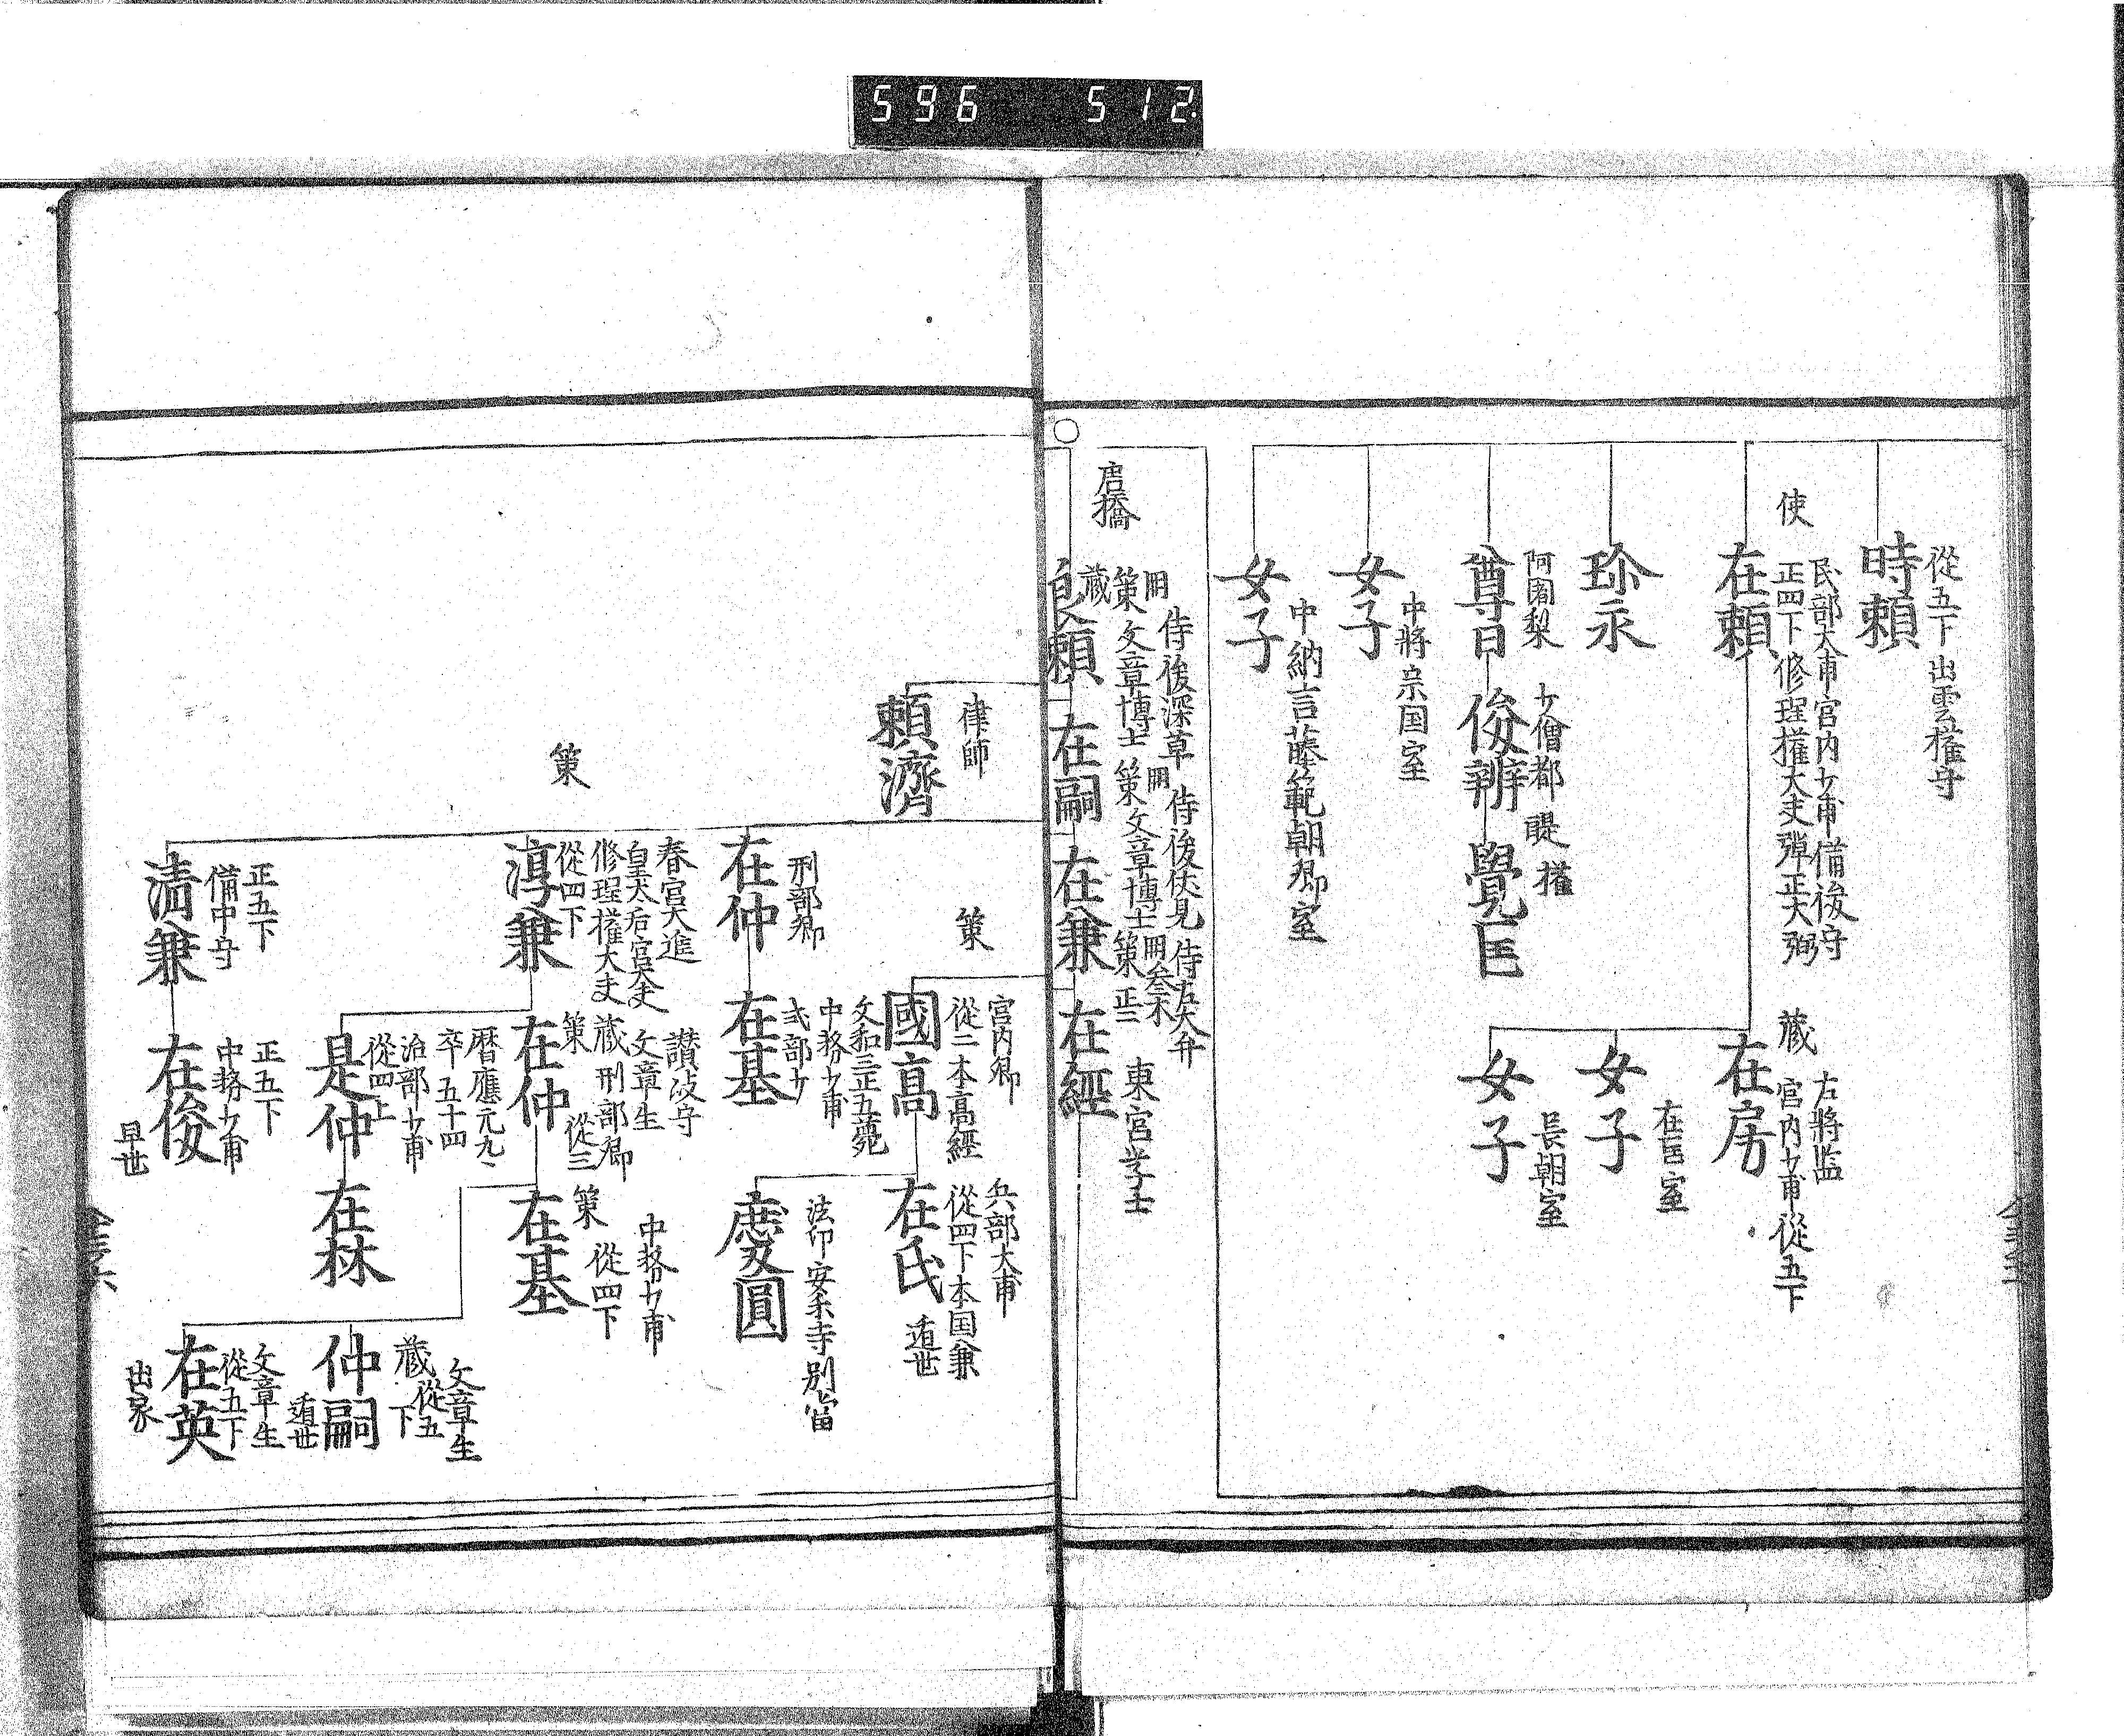 596 512
従五下出雲権守
時頼
使
民部大甫宮内少甫備後守
正四下修理権大夫弾正大弼
在頼
左将監
蔵 宮内少甫従五下
在房
在匡室
女子
長朝室
女子
珎永
阿闍梨
尊日
少僧都 醍 権
俊辨
覺匡
中将宗国室
女子
中納言藤範朝卿室
女子
唐橋
侍後深草
策文章博士
蔵
良頼
侍後伏見
策文章博士
在嗣
侍左大弁
策正二
在兼
東宮学士
在經
律師
頼濟
策
宮内卿
従二本高經
國高
兵部大甫
従四下本国兼
在氏
遁世
法印安楽寺別當
慶圓
刑部卿
在仲
文和三正五薨
中務少甫
式部少
在基
策
春宮大進
皇太后宮大夫
修理権大夫
従四下
淳兼
讃岐守
文章生
蔵刑部卿
策 従三
在仲
中務少甫
策 従四下
在基
文章生
蔵従五下
仲嗣
遁世
文章生
従五下
在英
出家
暦應元九、
卒五十四
治部少甫
従四上
是仲
在林
正五下
備中守
清兼
正五下
中務少甫
在俊
早世